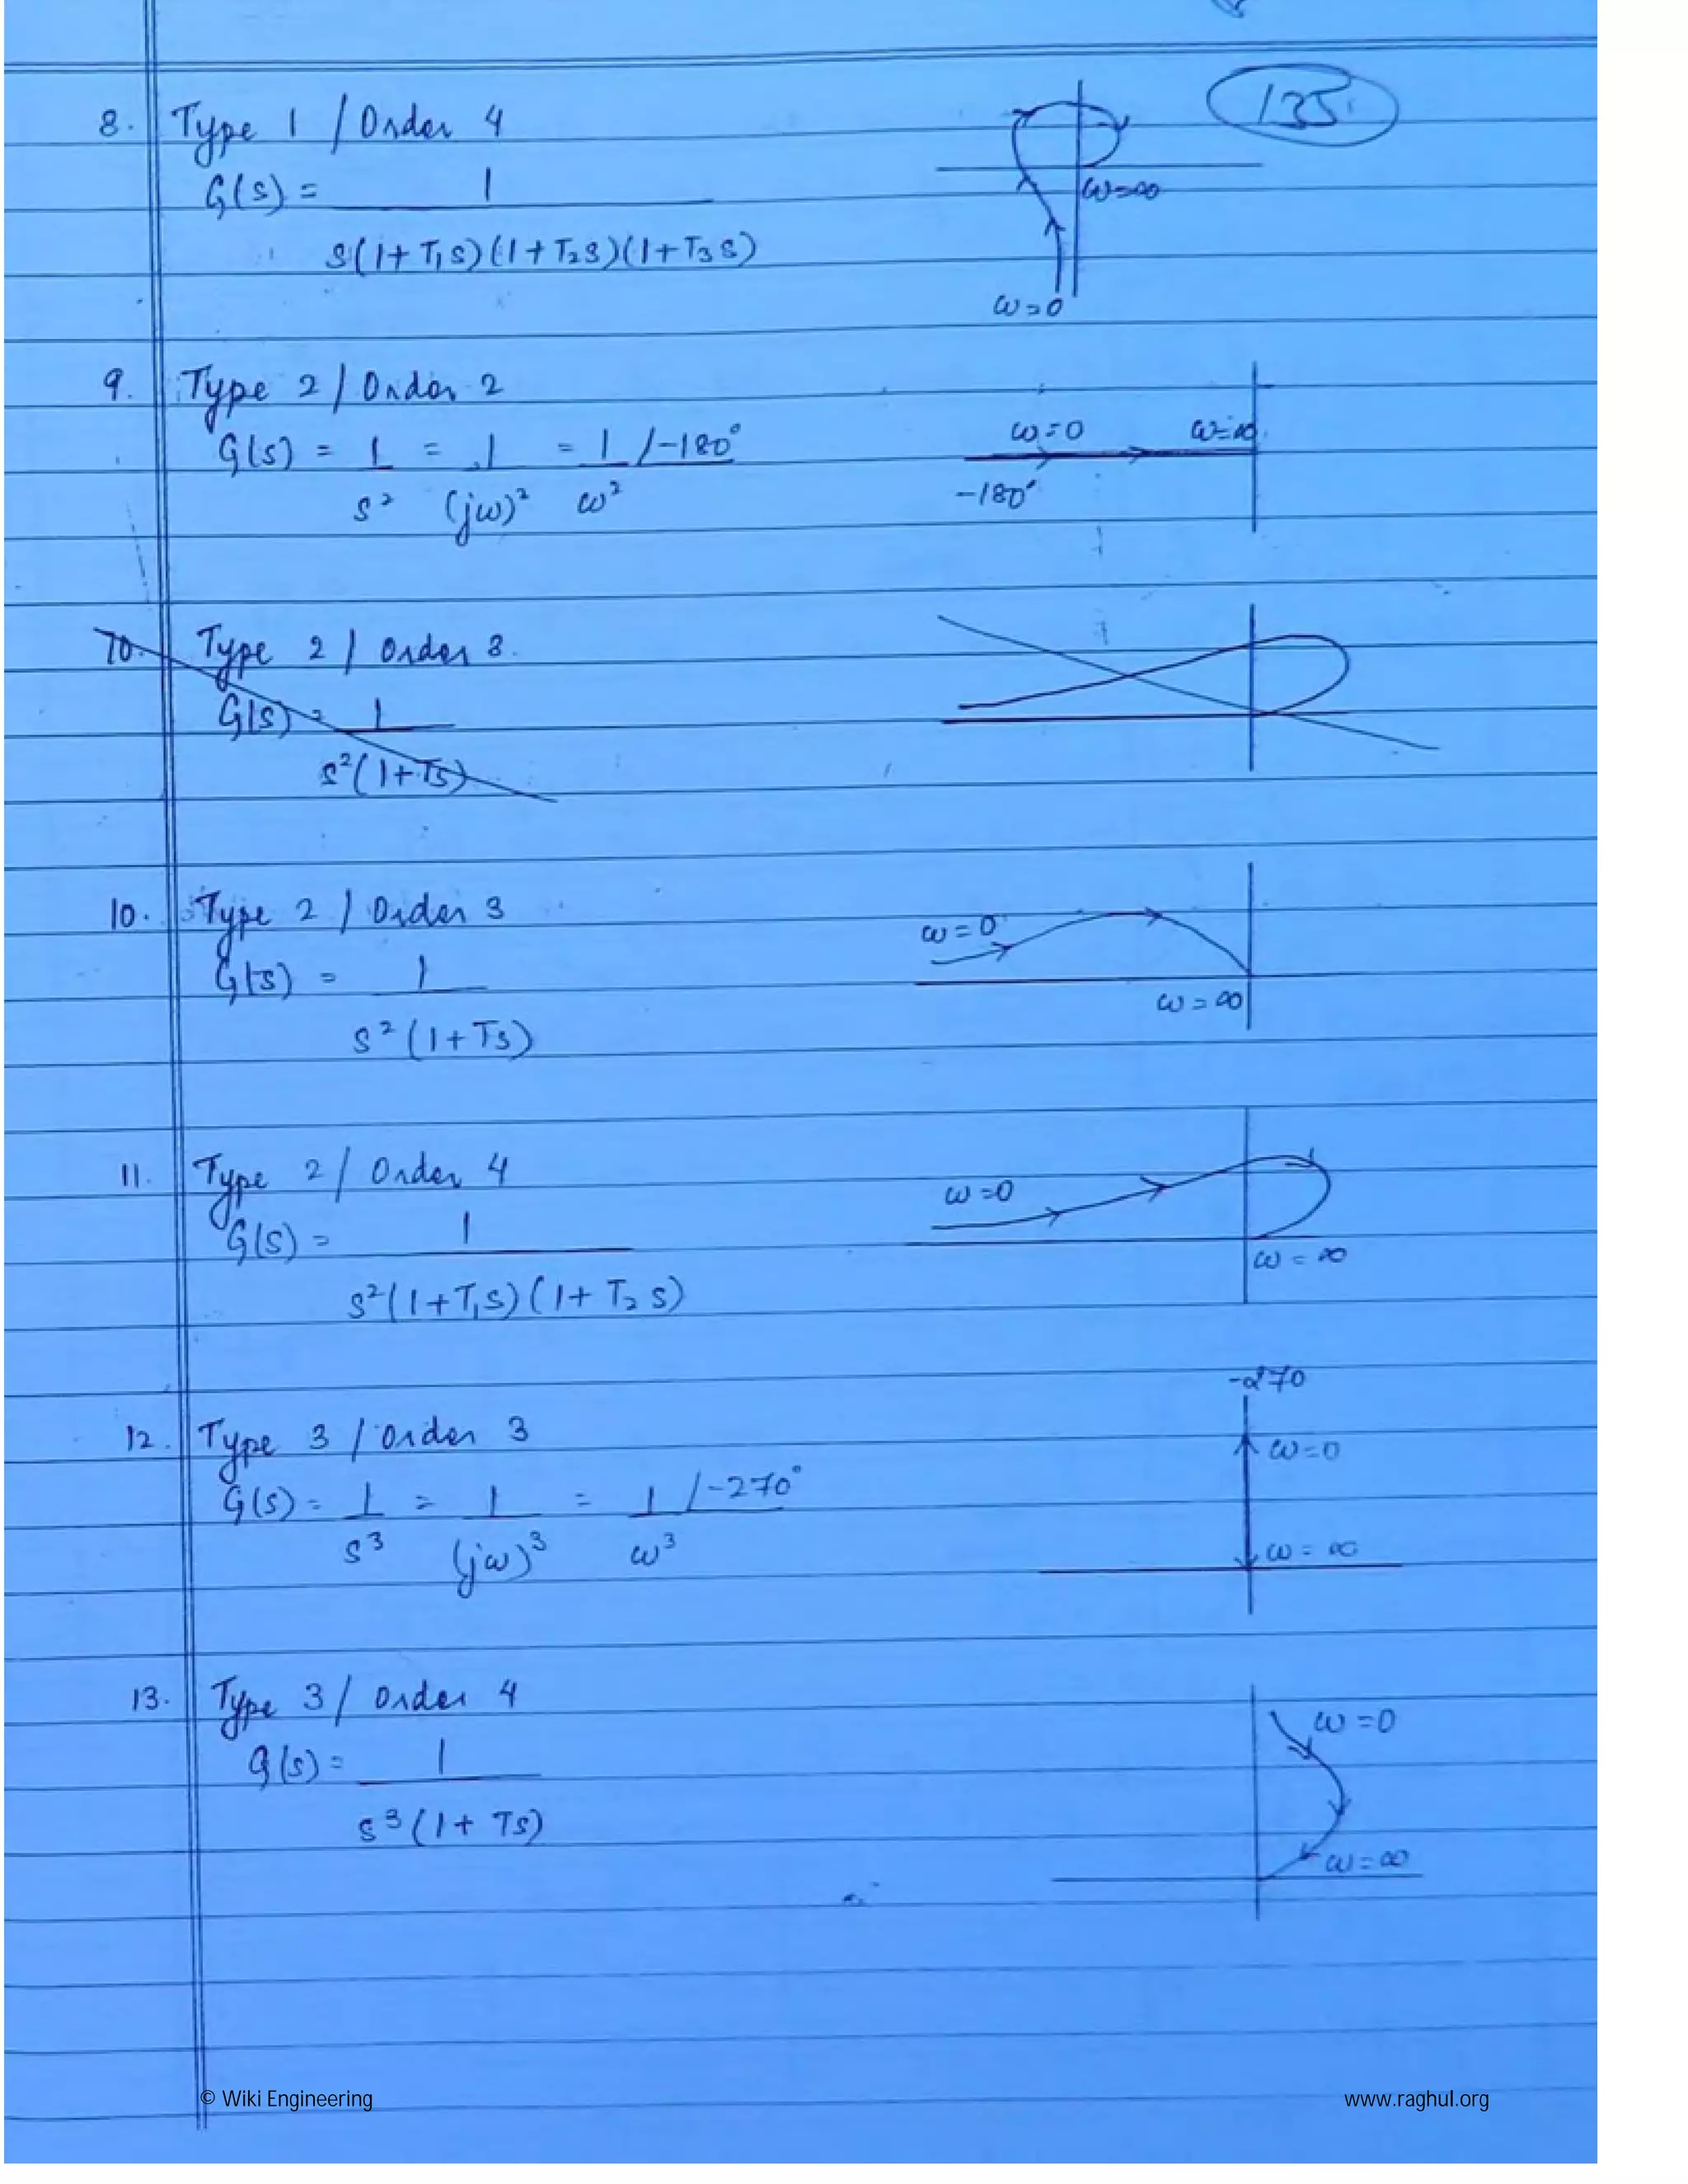 135
8. Type 1 / Order 4
G(s) = 1
s(1+T₁s)(1+T₂s)(1+T₃s)
ω=∞
ω=0
9. Type 2 / Order 2
G(s) = 1 = 1 = 1 /-180°
s² (jω)² ω²
ω=0 ω=∞
-180°
10. Type 2 / Order 3.
G(s) = 1
s²(1+Ts)
10. Type 2 / Order 3
G(s) = 1
s²(1+Ts)
ω=0
ω=∞
11. Type 2 / Order 4
G(s) = 1
s²(1+T₁s)(1+T₂s)
ω=0
ω=∞
12. Type 3 / Order 3
G(s) = 1 = 1 = 1 /-270°
s³ (jω)³ ω³
-270
ω=0
ω=∞
13. Type 3 / Order 4
G(s) = 1
s³(1+Ts)
ω=0
ω=∞
© Wiki Engineering www.raghul.org